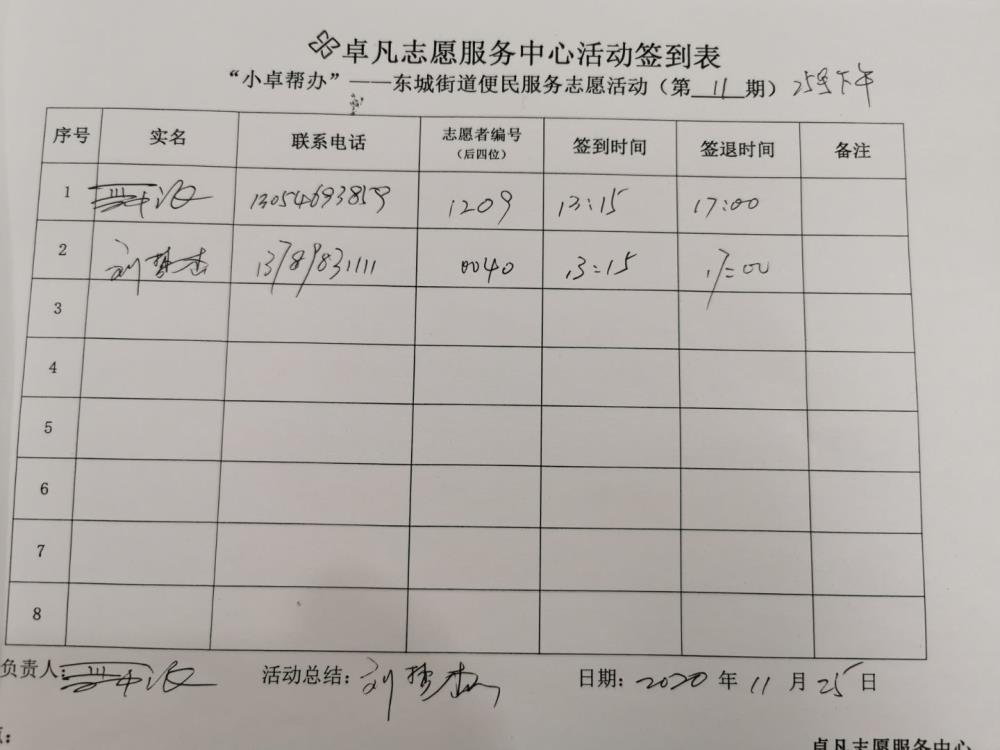 卓凡志愿服务中心活动签到表
“小卓帮办”——东城街道便民服务志愿活动（第 11 期）25号下午
序号 实名 联系电话 志愿者编号（后四位） 签到时间 签退时间 备注
1 13054693859 1209 13:15 17:00
2 刘梦杰 13789831111 0040 13:15 17:00
3
4
5
6
7
8
负责人： 活动总结：刘梦杰 日期：2020 年 11 月 25 日
卓凡志愿服务中心